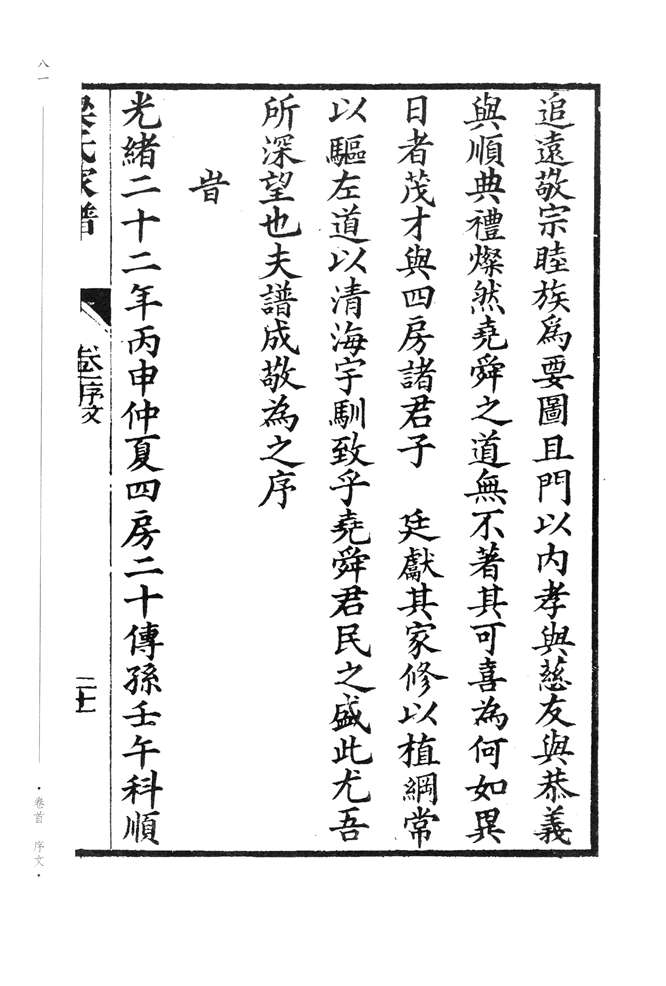 追遠敬宗睦族爲要圖且門以內孝與慈友與恭義
與順典禮燦然堯舜之道無不著其可喜為何如異
日者茂才與四房諸君子　廷獻其家修以植綱常
以驅左道以清海宇馴致乎堯舜君民之盛此尤吾
所深望也夫譜成敬為之序
旹
光緒二十二年丙申仲夏四房二十傳孫壬午科順
梁氏家譜
卷一序文
二十
八一
·卷首　序文·